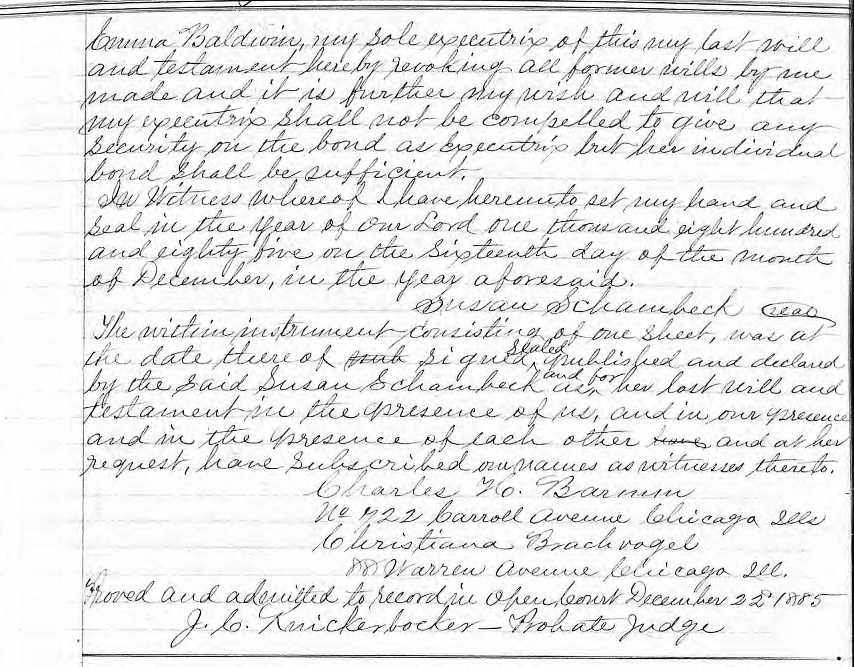 Emma Baldwin, my sole executrix of this my last will
and testament hereby revoking all former wills by me
made and it is further my wish and will that
my executrix shall not be compelled to give any
security on the bond as executrix but her individual
bond shall be sufficient.
In Witness whereof I have hereunto set my hand and
seal in the year of our Lord one thousand eight hundred
and eighty five on the sixteenth day of the month
of December, in the year aforesaid.
Susan Schambeck seal
The within instrument consisting of one sheet, was at
the date there of signed, sealed, published and declared
by the said Susan Schambeck as, and for her last will and
testament in the presence of us, and in our presence
and in the presence of each other have and at her
request, have subscribed our names as witnesses thereto.
Charles H. Barnum
No 722 Carroll Avenue Chicago Ills
Christiana Brachvogel
Warren Avenue Chicago Ill.
Proved and admitted to record in Open Court December 22d 1885
J. C. Knickerbocker - Probate Judge